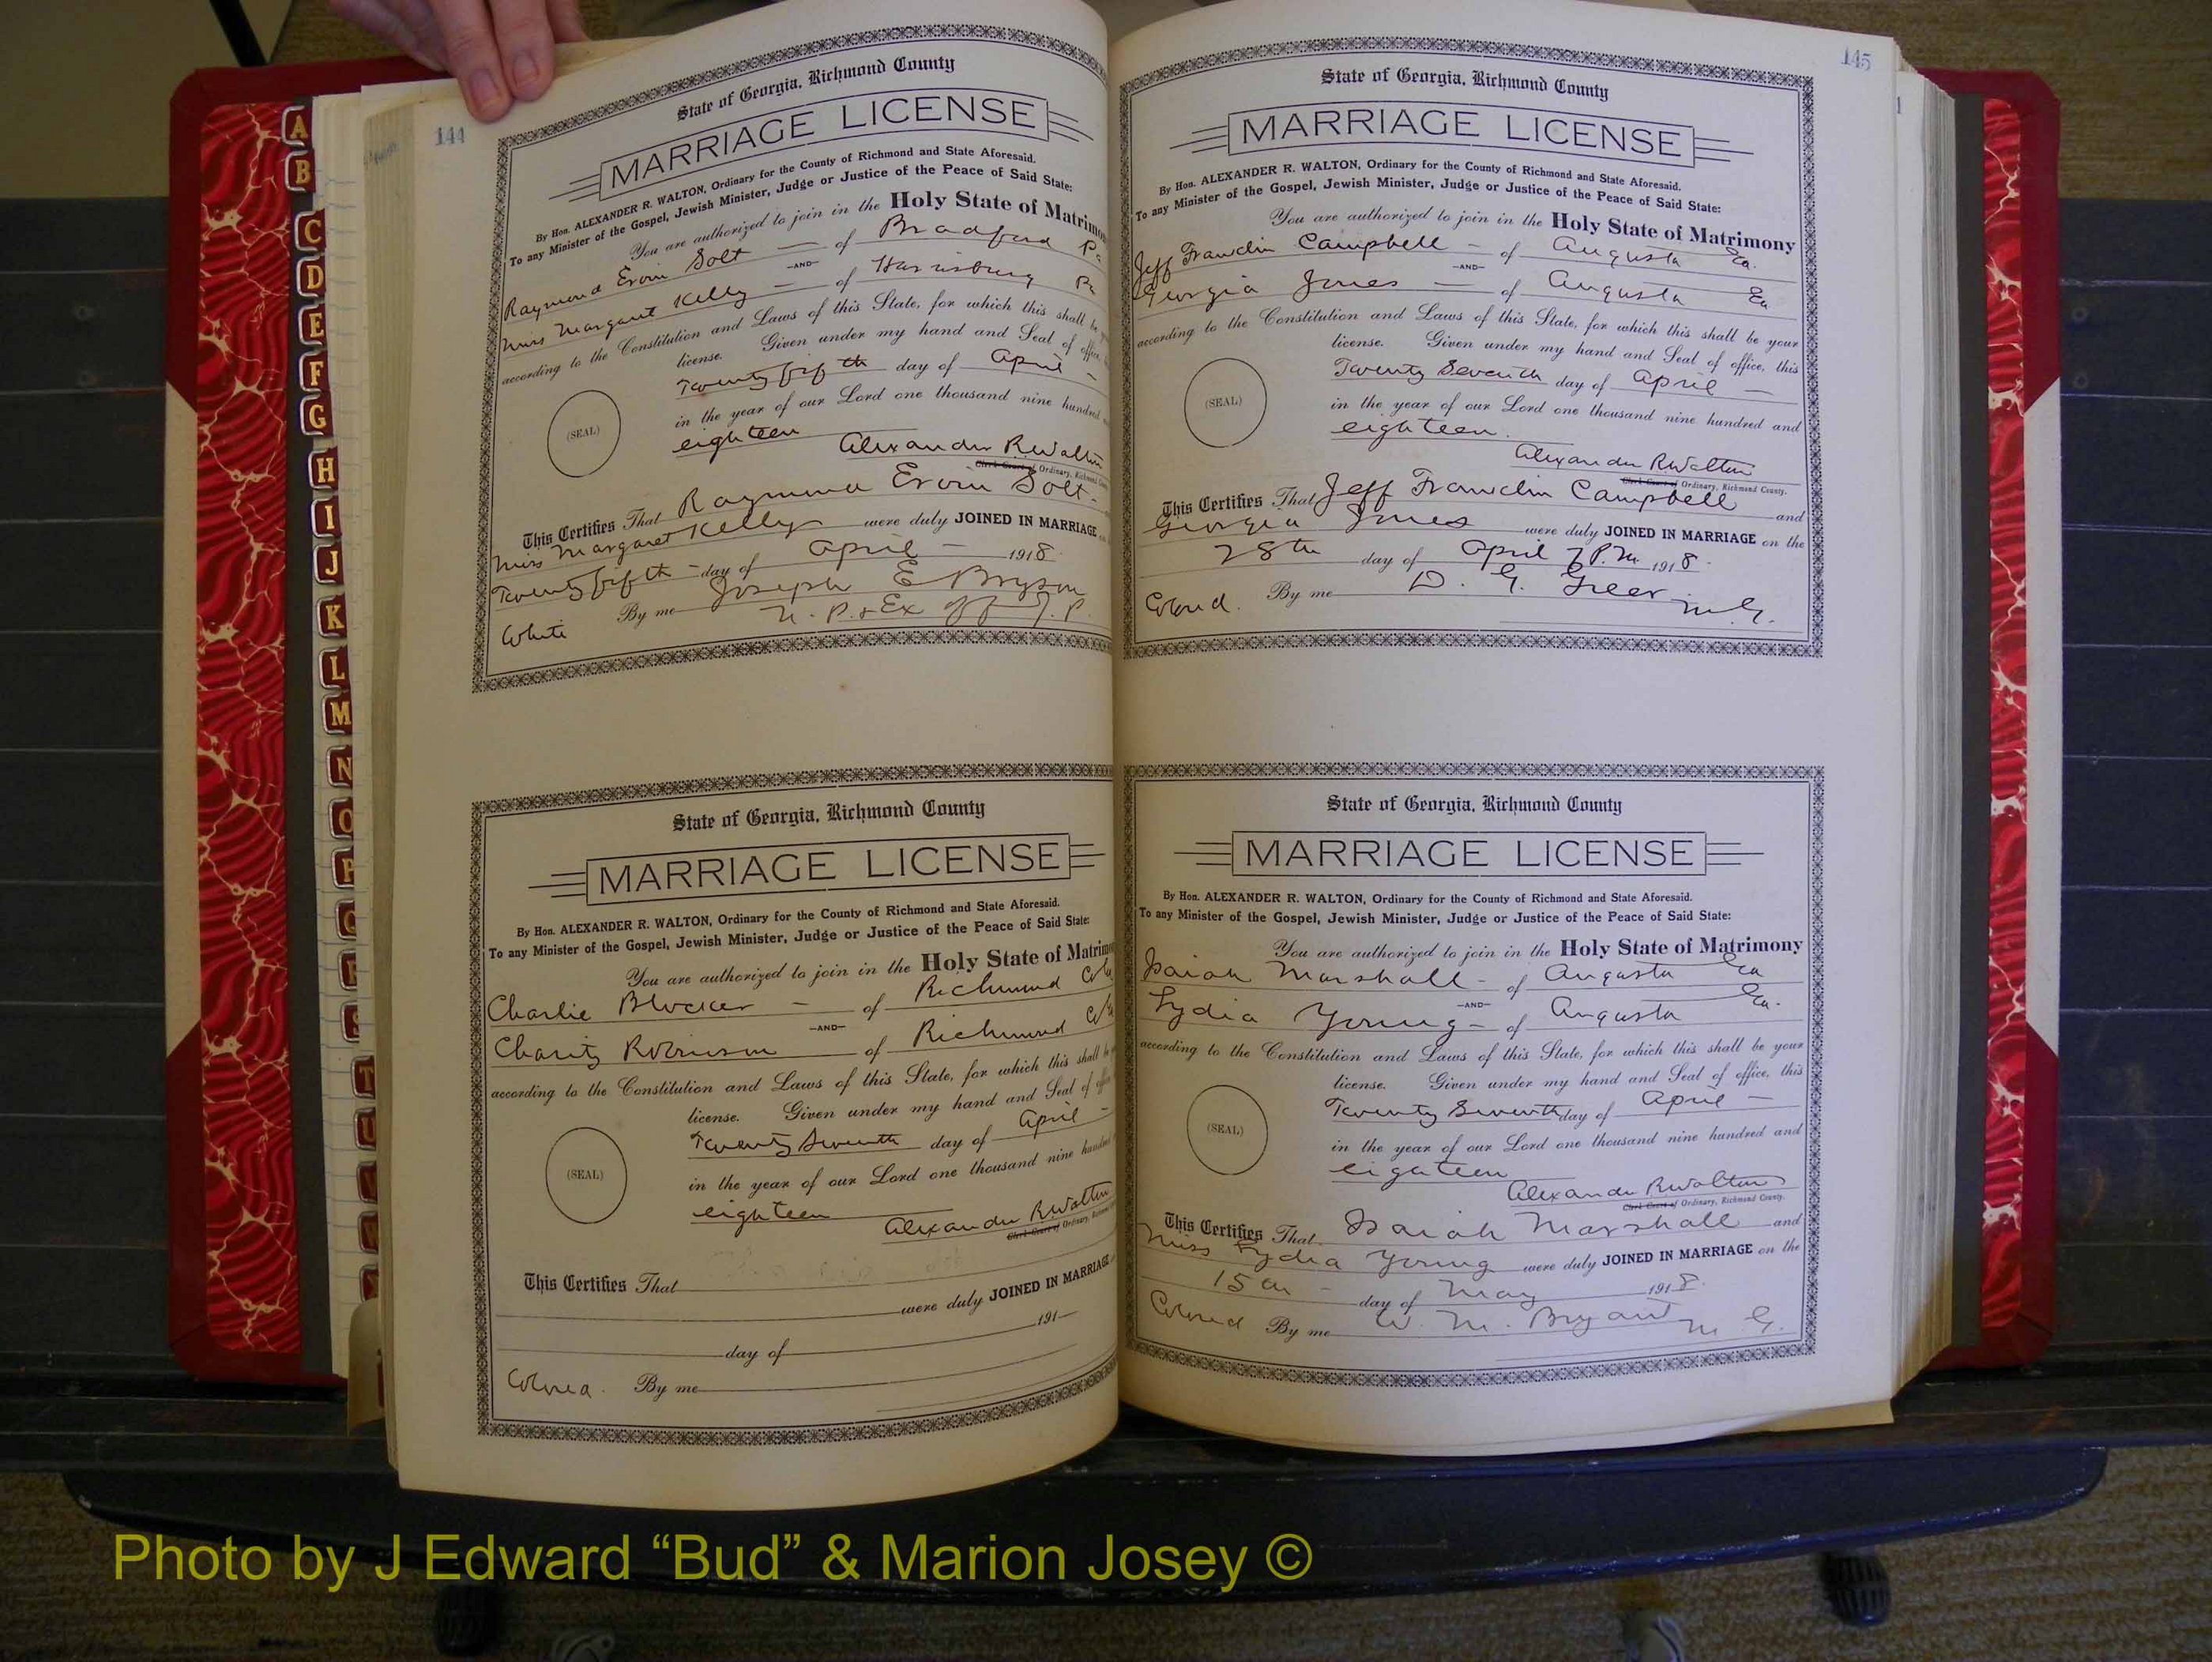 144
State of Georgia, Richmond County
MARRIAGE LICENSE
By Hon. ALEXANDER R. WALTON, Ordinary for the County of Richmond and State Aforesaid.
To any Minister of the Gospel, Jewish Minister, Judge or Justice of the Peace of Said State:
You are authorized to join in the Holy State of Matrimo
Raymond Ervin Solt — of Bradford Pa
—AND—
Miss Margaret Kelly — of Harrisburg Pa
according to the Constitution and Laws of this State, for which this shall be
license. Given under my hand and Seal of office,
Twenty fifth day of April —
(SEAL)
in the year of our Lord one thousand nine hundred
eighteen
Alexander R. Walton
Clerk Court of Ordinary, Richmond County
This Certifies That Raymond Ervin Solt -
Miss Margaret Kelly were duly JOINED IN MARRIAGE
Twenty fifth - day of April — 1918
By me Joseph E Bryson
White N. P. & Ex off J. P.
State of Georgia, Richmond County
MARRIAGE LICENSE
By Hon. ALEXANDER R. WALTON, Ordinary for the County of Richmond and State Aforesaid.
To any Minister of the Gospel, Jewish Minister, Judge or Justice of the Peace of Said State:
You are authorized to join in the Holy State of Matrimo
Charlie Blocker — of Richmond Co
—AND—
Charity Robinson of Richmond Co
according to the Constitution and Laws of this State, for which this shall be
license. Given under my hand and Seal of office
Twenty Seventh day of April —
(SEAL)
in the year of our Lord one thousand nine hundred
eighteen
Alexander R. Walton
Clerk Court of Ordinary, Richmond
This Certifies That
were duly JOINED IN MARRIAGE
day of 191
Colored. By me
145
State of Georgia, Richmond County
MARRIAGE LICENSE
By Hon. ALEXANDER R. WALTON, Ordinary for the County of Richmond and State Aforesaid.
To any Minister of the Gospel, Jewish Minister, Judge or Justice of the Peace of Said State:
You are authorized to join in the Holy State of Matrimony
Jeff Franclin Campbell — of Augusta Ga.
—AND—
Georgia Jones — of Augusta Ga
according to the Constitution and Laws of this State, for which this shall be your
license. Given under my hand and Seal of office, this
Twenty Seventh day of April —
(SEAL)
in the year of our Lord one thousand nine hundred and
eighteen.
Alexander R Walton
Clerk Court of Ordinary, Richmond County.
This Certifies That Jeff Franclin Campbell and
Georgia Jones were duly JOINED IN MARRIAGE on the
28th day of April 7 P.M. 1918.
Colored. By me D. G. Greer M. G.
State of Georgia, Richmond County
MARRIAGE LICENSE
By Hon. ALEXANDER R. WALTON, Ordinary for the County of Richmond and State Aforesaid.
To any Minister of the Gospel, Jewish Minister, Judge or Justice of the Peace of Said State:
You are authorized to join in the Holy State of Matrimony
Isaiah Marshall - of Augusta Ga
—AND—
Lydia Young - of Augusta Ga.
according to the Constitution and Laws of this State, for which this shall be your
license. Given under my hand and Seal of office, this
Twenty Seventh day of April —
(SEAL)
in the year of our Lord one thousand nine hundred and
eighteen
Alexander R Walton
Clerk Court of Ordinary, Richmond County.
This Certifies That Isaiah Marshall and
Miss Lydia Young were duly JOINED IN MARRIAGE on the
15th - day of May 1918.
Colored By me W. M. Bryant M. G.
A
B
C
D
E
F
G
H
I
J
K
L
M
N
O
P
Q
R
S
T
U
V
W
Photo by J Edward “Bud” & Marion Josey ©